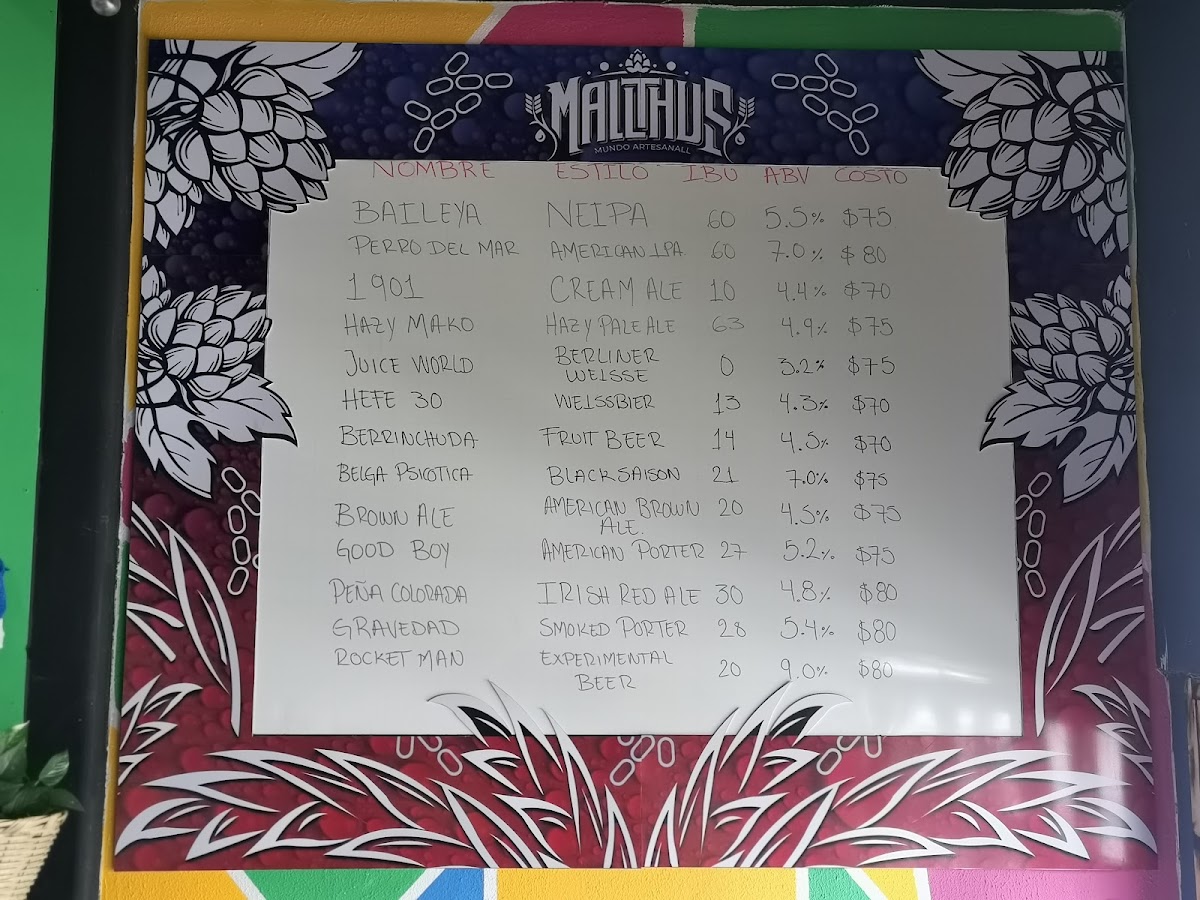 MALLTHUS
MUNDO ARTESANALL
NOMBRE ESTILO IBU ABV COSTO
BAILEYA NEIPA 60 5.5% $75
PERRO DEL MAR AMERICAN IPA 60 7.0% $80
1901 CREAM ALE 10 4.4% $70
HAZY MAKO HAZY PALE ALE 63 4.9% $75
JUICE WORLD BERLINER WEISSE 0 3.2% $75
HEFE 30 WEISSBIER 13 4.3% $70
BERRINCHUDA FRUIT BEER 14 4.5% $70
BELGA PSICOTICA BLACK SAISON 21 7.0% $75
BROWN ALE AMERICAN BROWN ALE. 20 4.5% $75
GOOD BOY AMERICAN PORTER 27 5.2% $75
PEÑA COLORADA IRISH RED ALE 30 4.8% $80
GRAVEDAD SMOKED PORTER 28 5.4% $80
ROCKET MAN EXPERIMENTAL BEER 20 9.0% $80